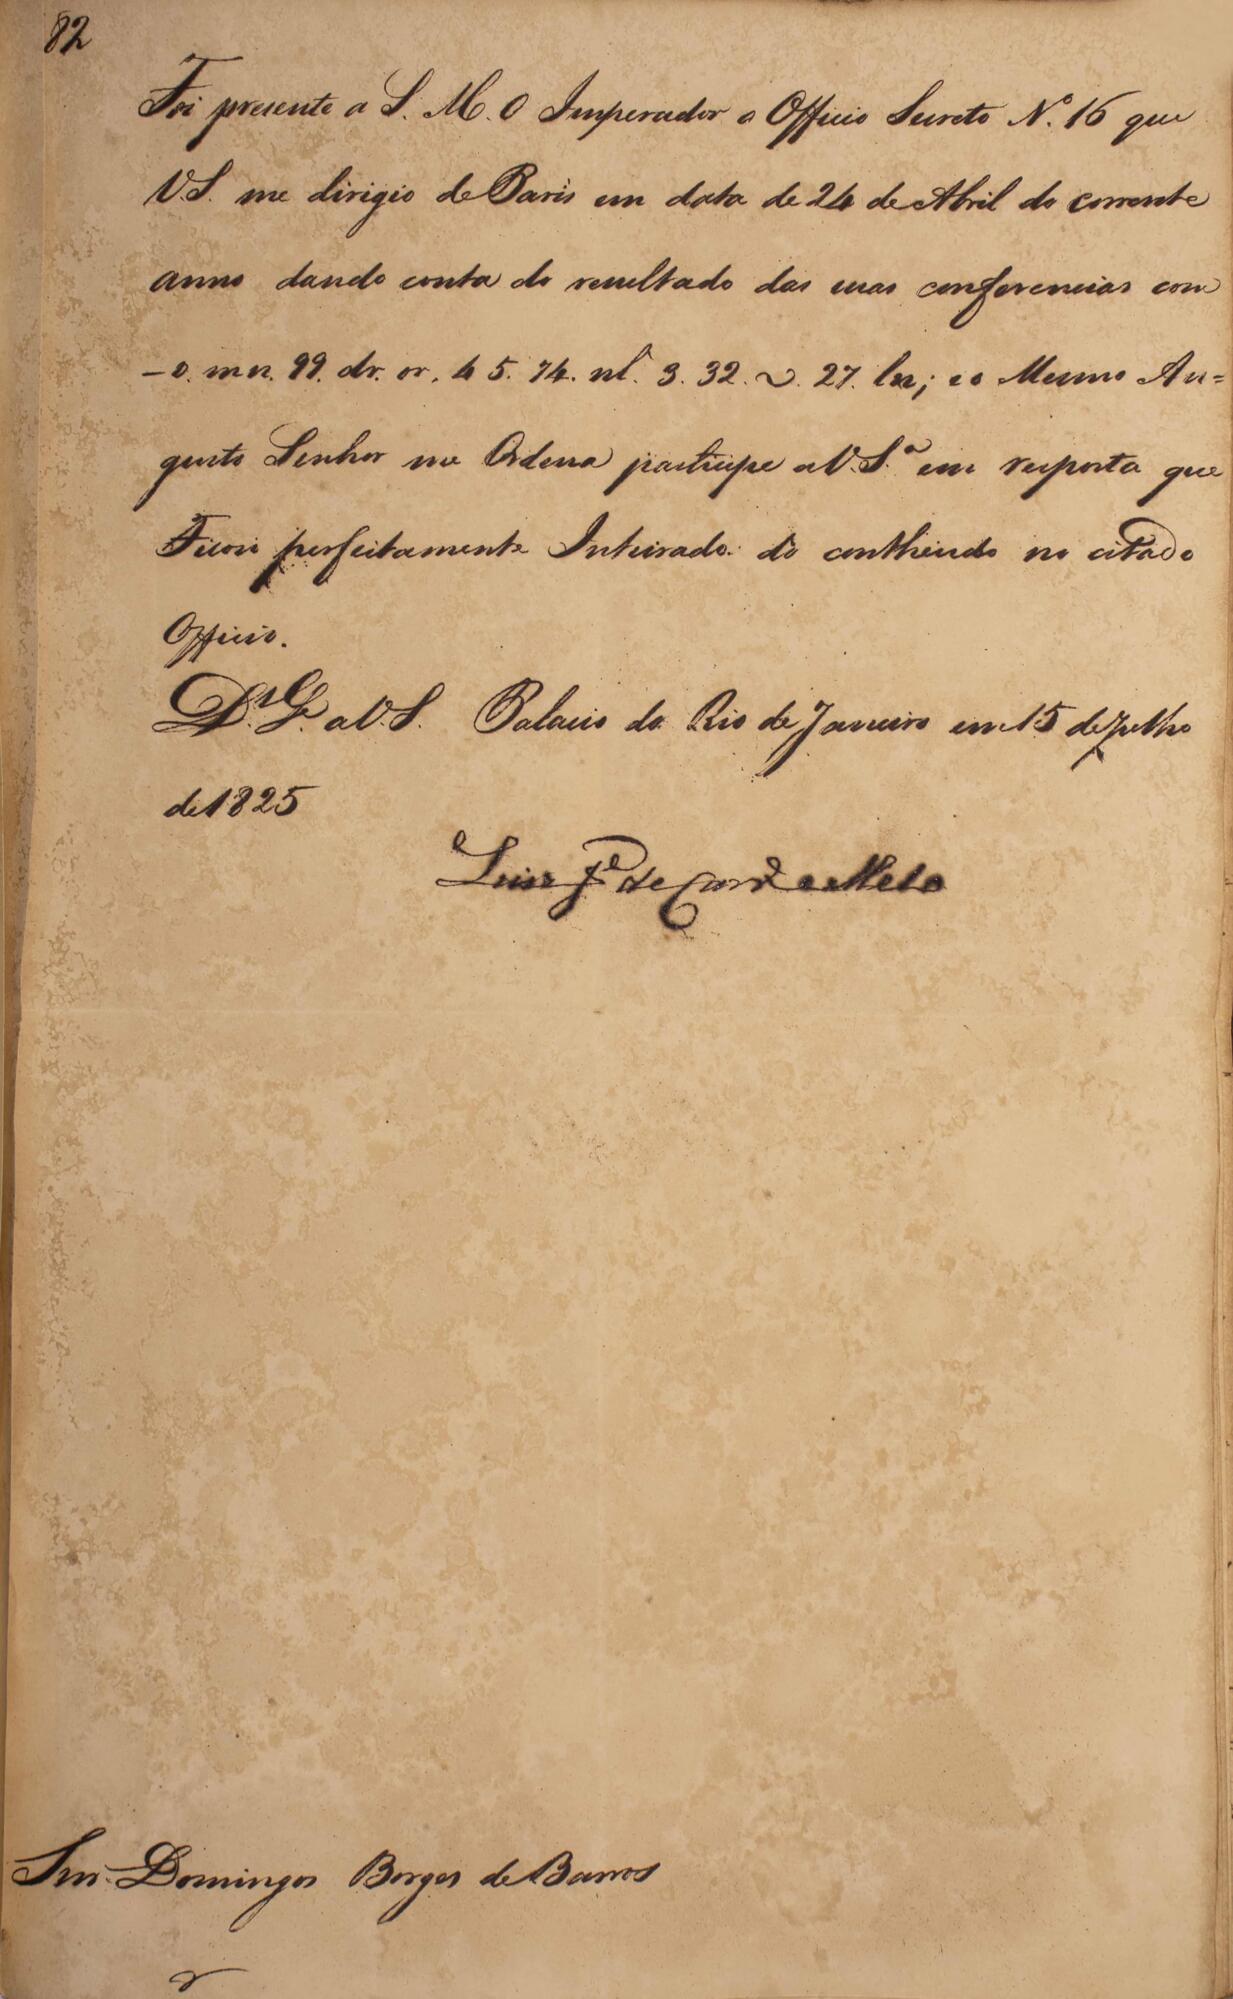 82
Foi presente a S. M. O Imperador o Officio Secreto N.º 16 que
V.S. me dirigio de Paris em data de 24 de Abril do corrente
anno dando conta do resultado das suas conferencias com
– o. mn. 99. dr. or. 4 5. 74. nl. 3. 32. 27. ln; e o Mesmo Au=
gusto Senhor me Ordena participe a V.S.ª em resposta que
Ficou perfeitamente Inteirado do contheudo no citado
Officio.
D.s G.e a V.S. Palacio do Rio de Janeiro em 15 de Julho
de 1825
Luis J.e de Carv.º e Mello
Snr. Domingos Borges de Barros